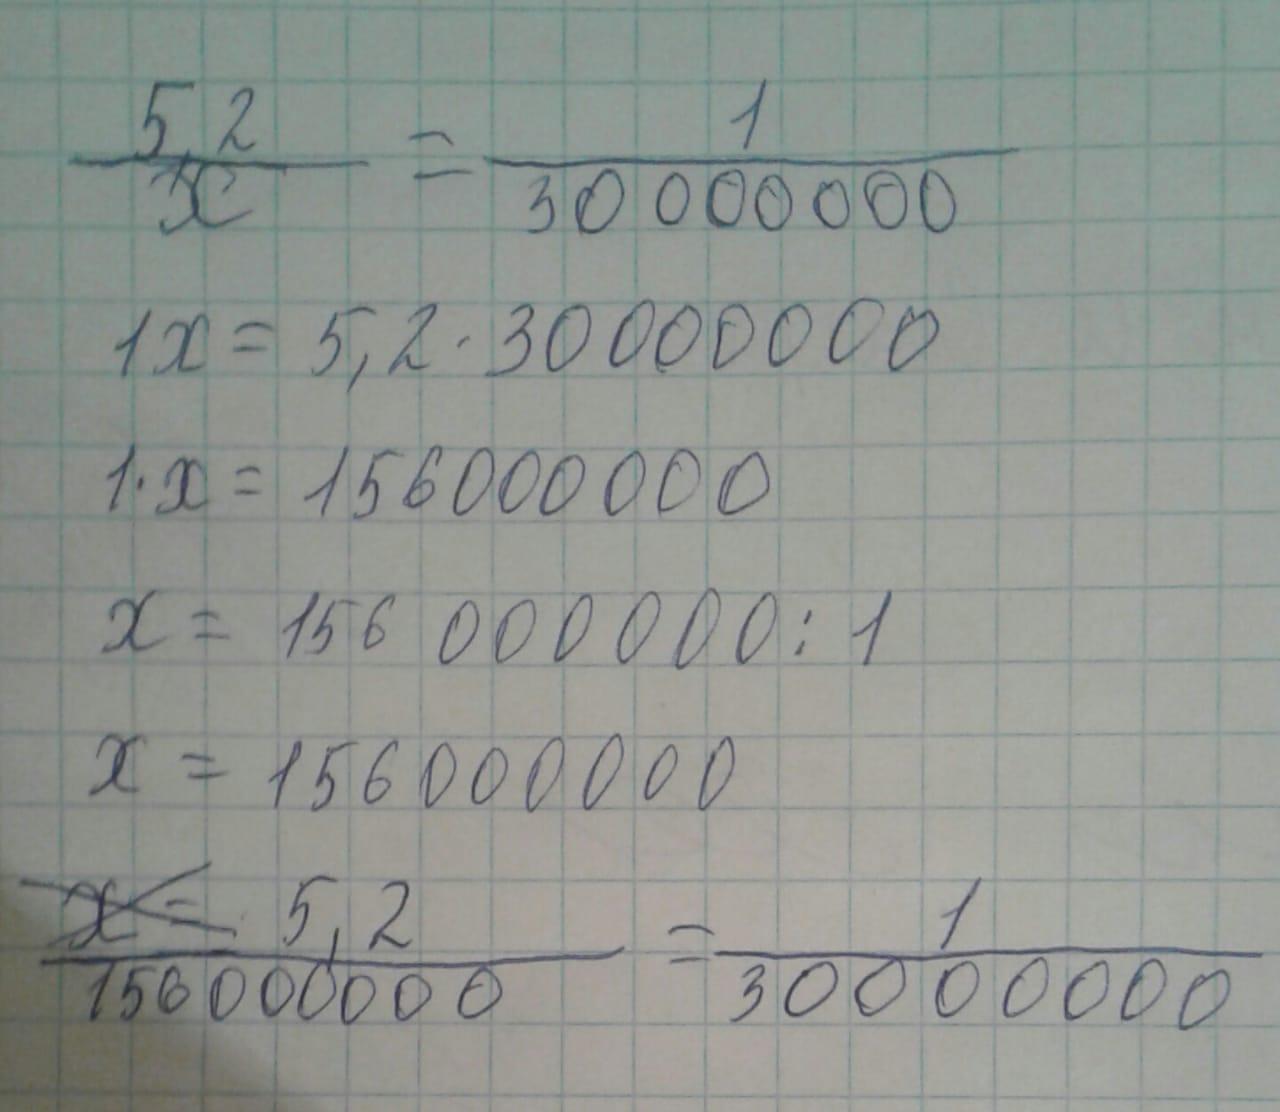 5,2 / x = 1 / 30000000
1x = 5,2 · 30000000
1·x = 156000000
x = 156 000000 : 1
x = 156000000
x = 5,2 / 156000000 = 1 / 30000000